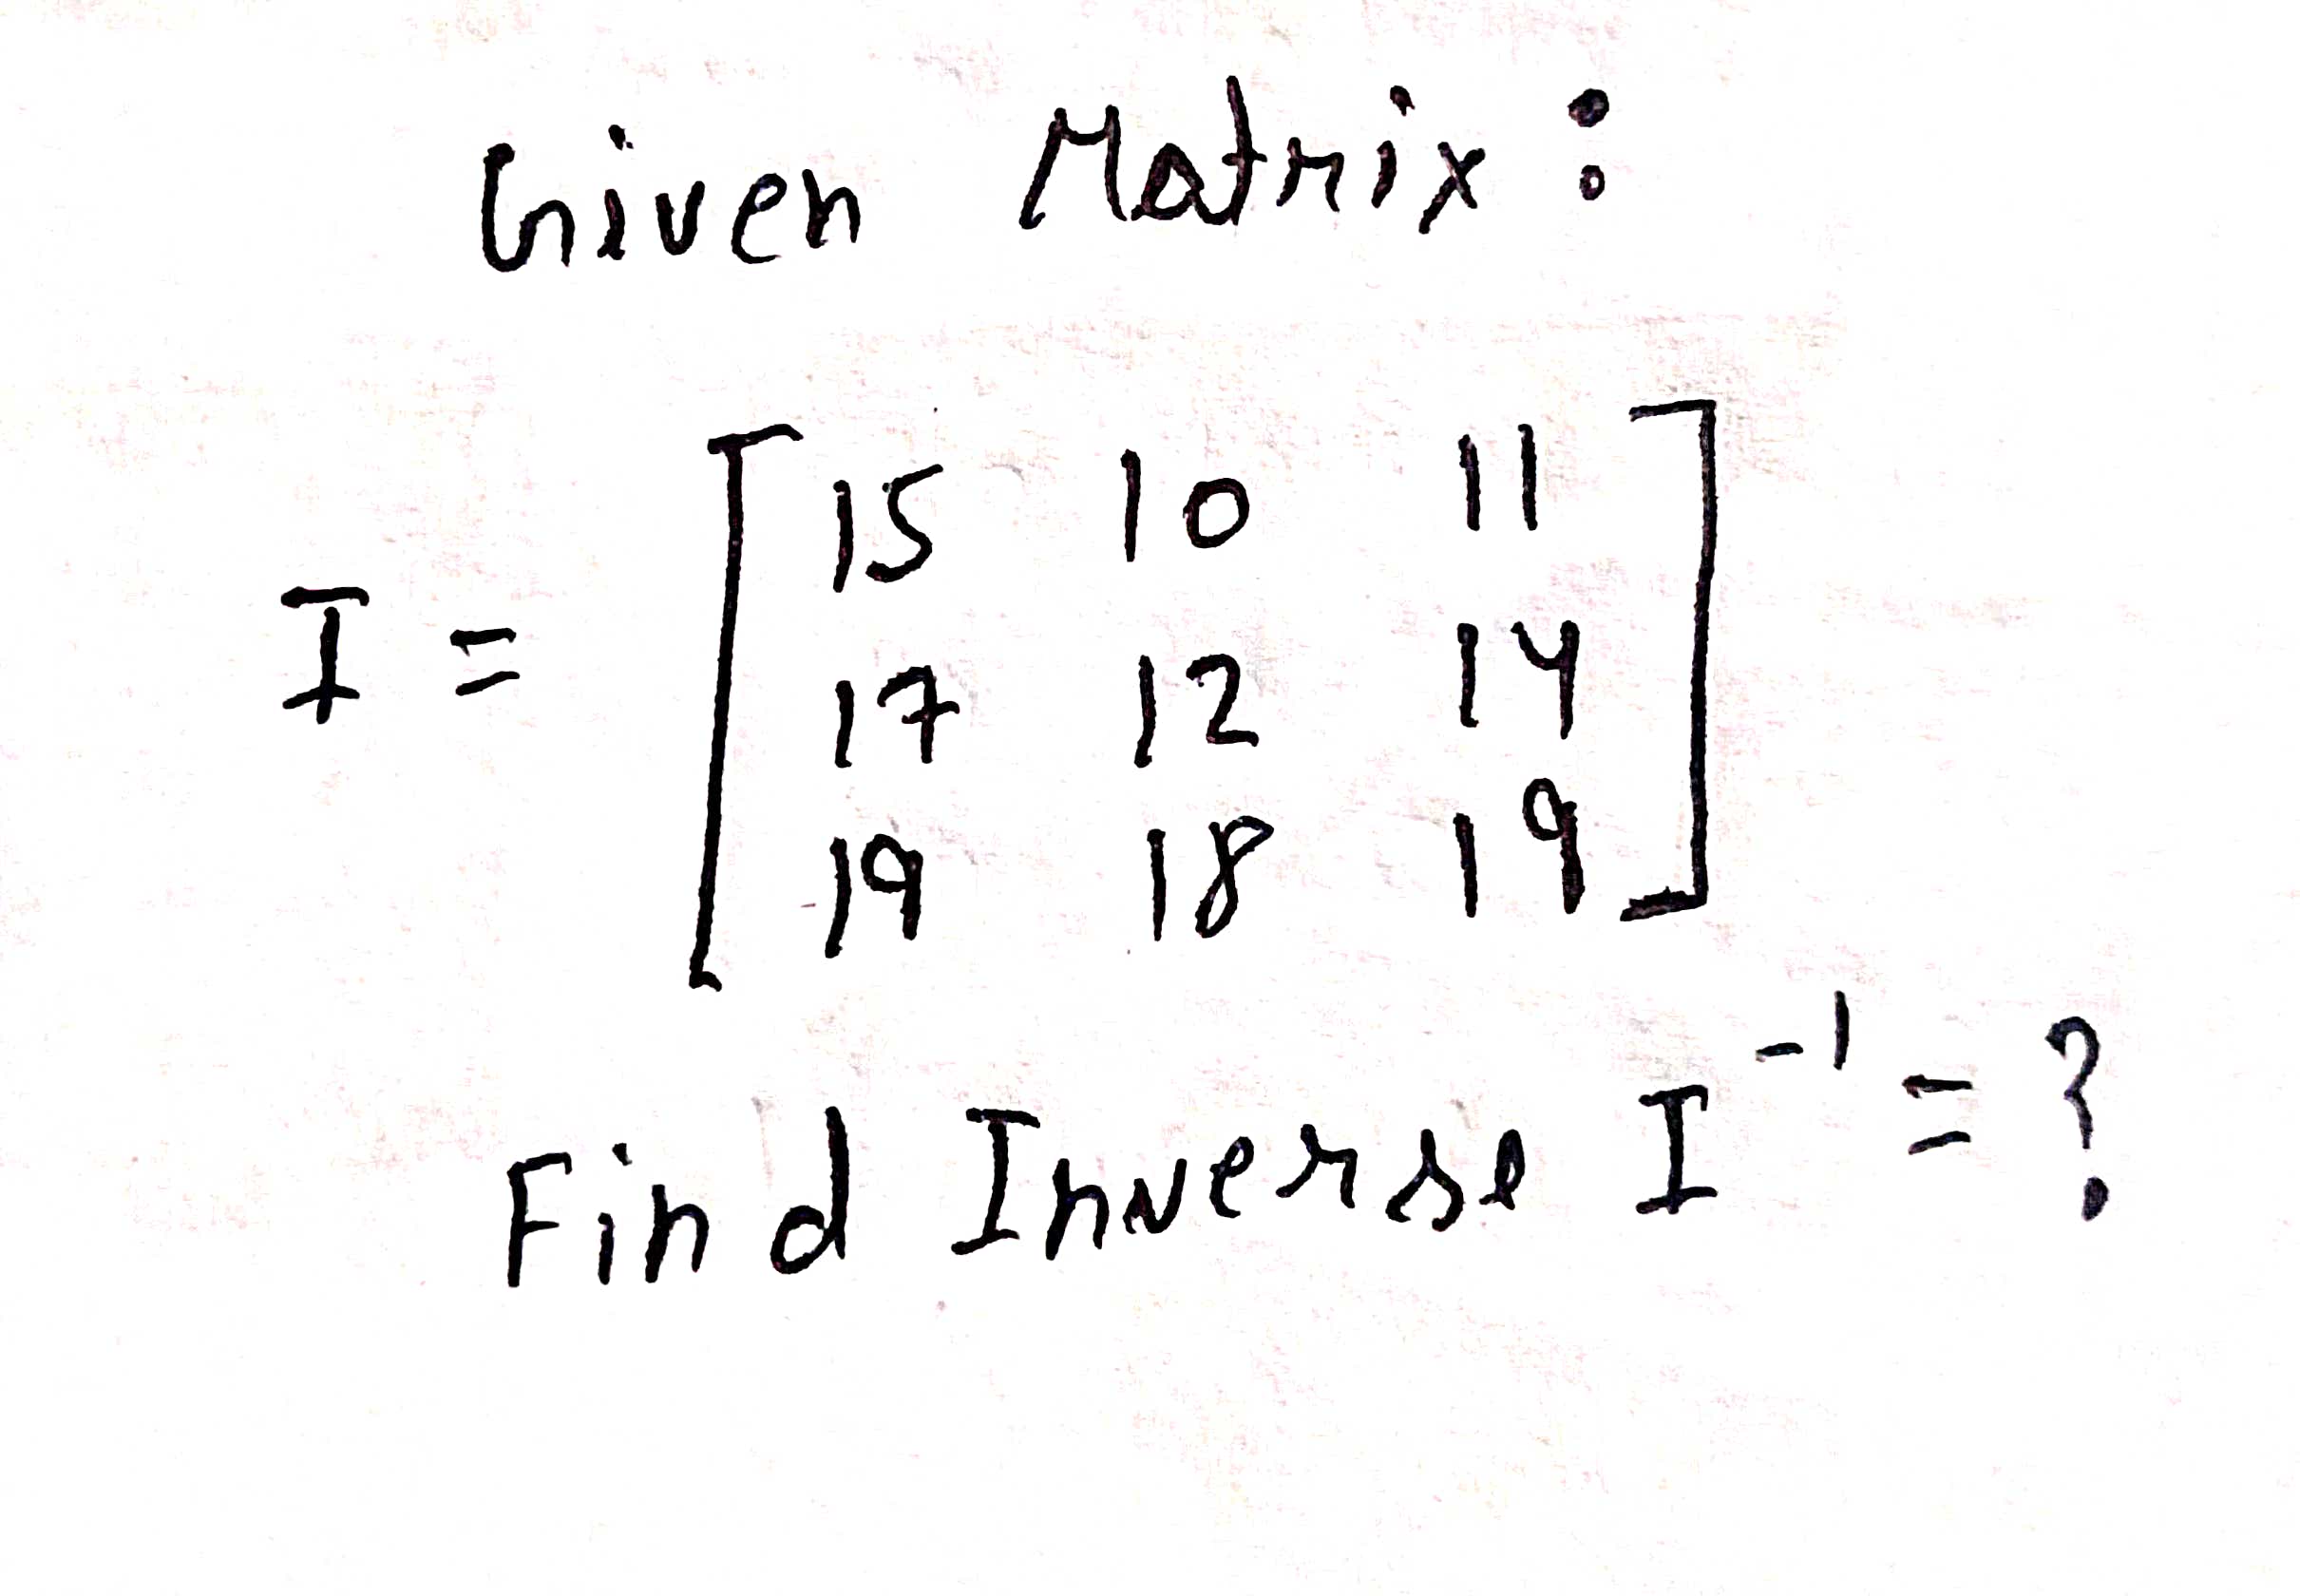 Given Matrix :
I = [ 15 10 11
17 12 14
19 18 19 ]
Find Inverse I⁻¹ = ?